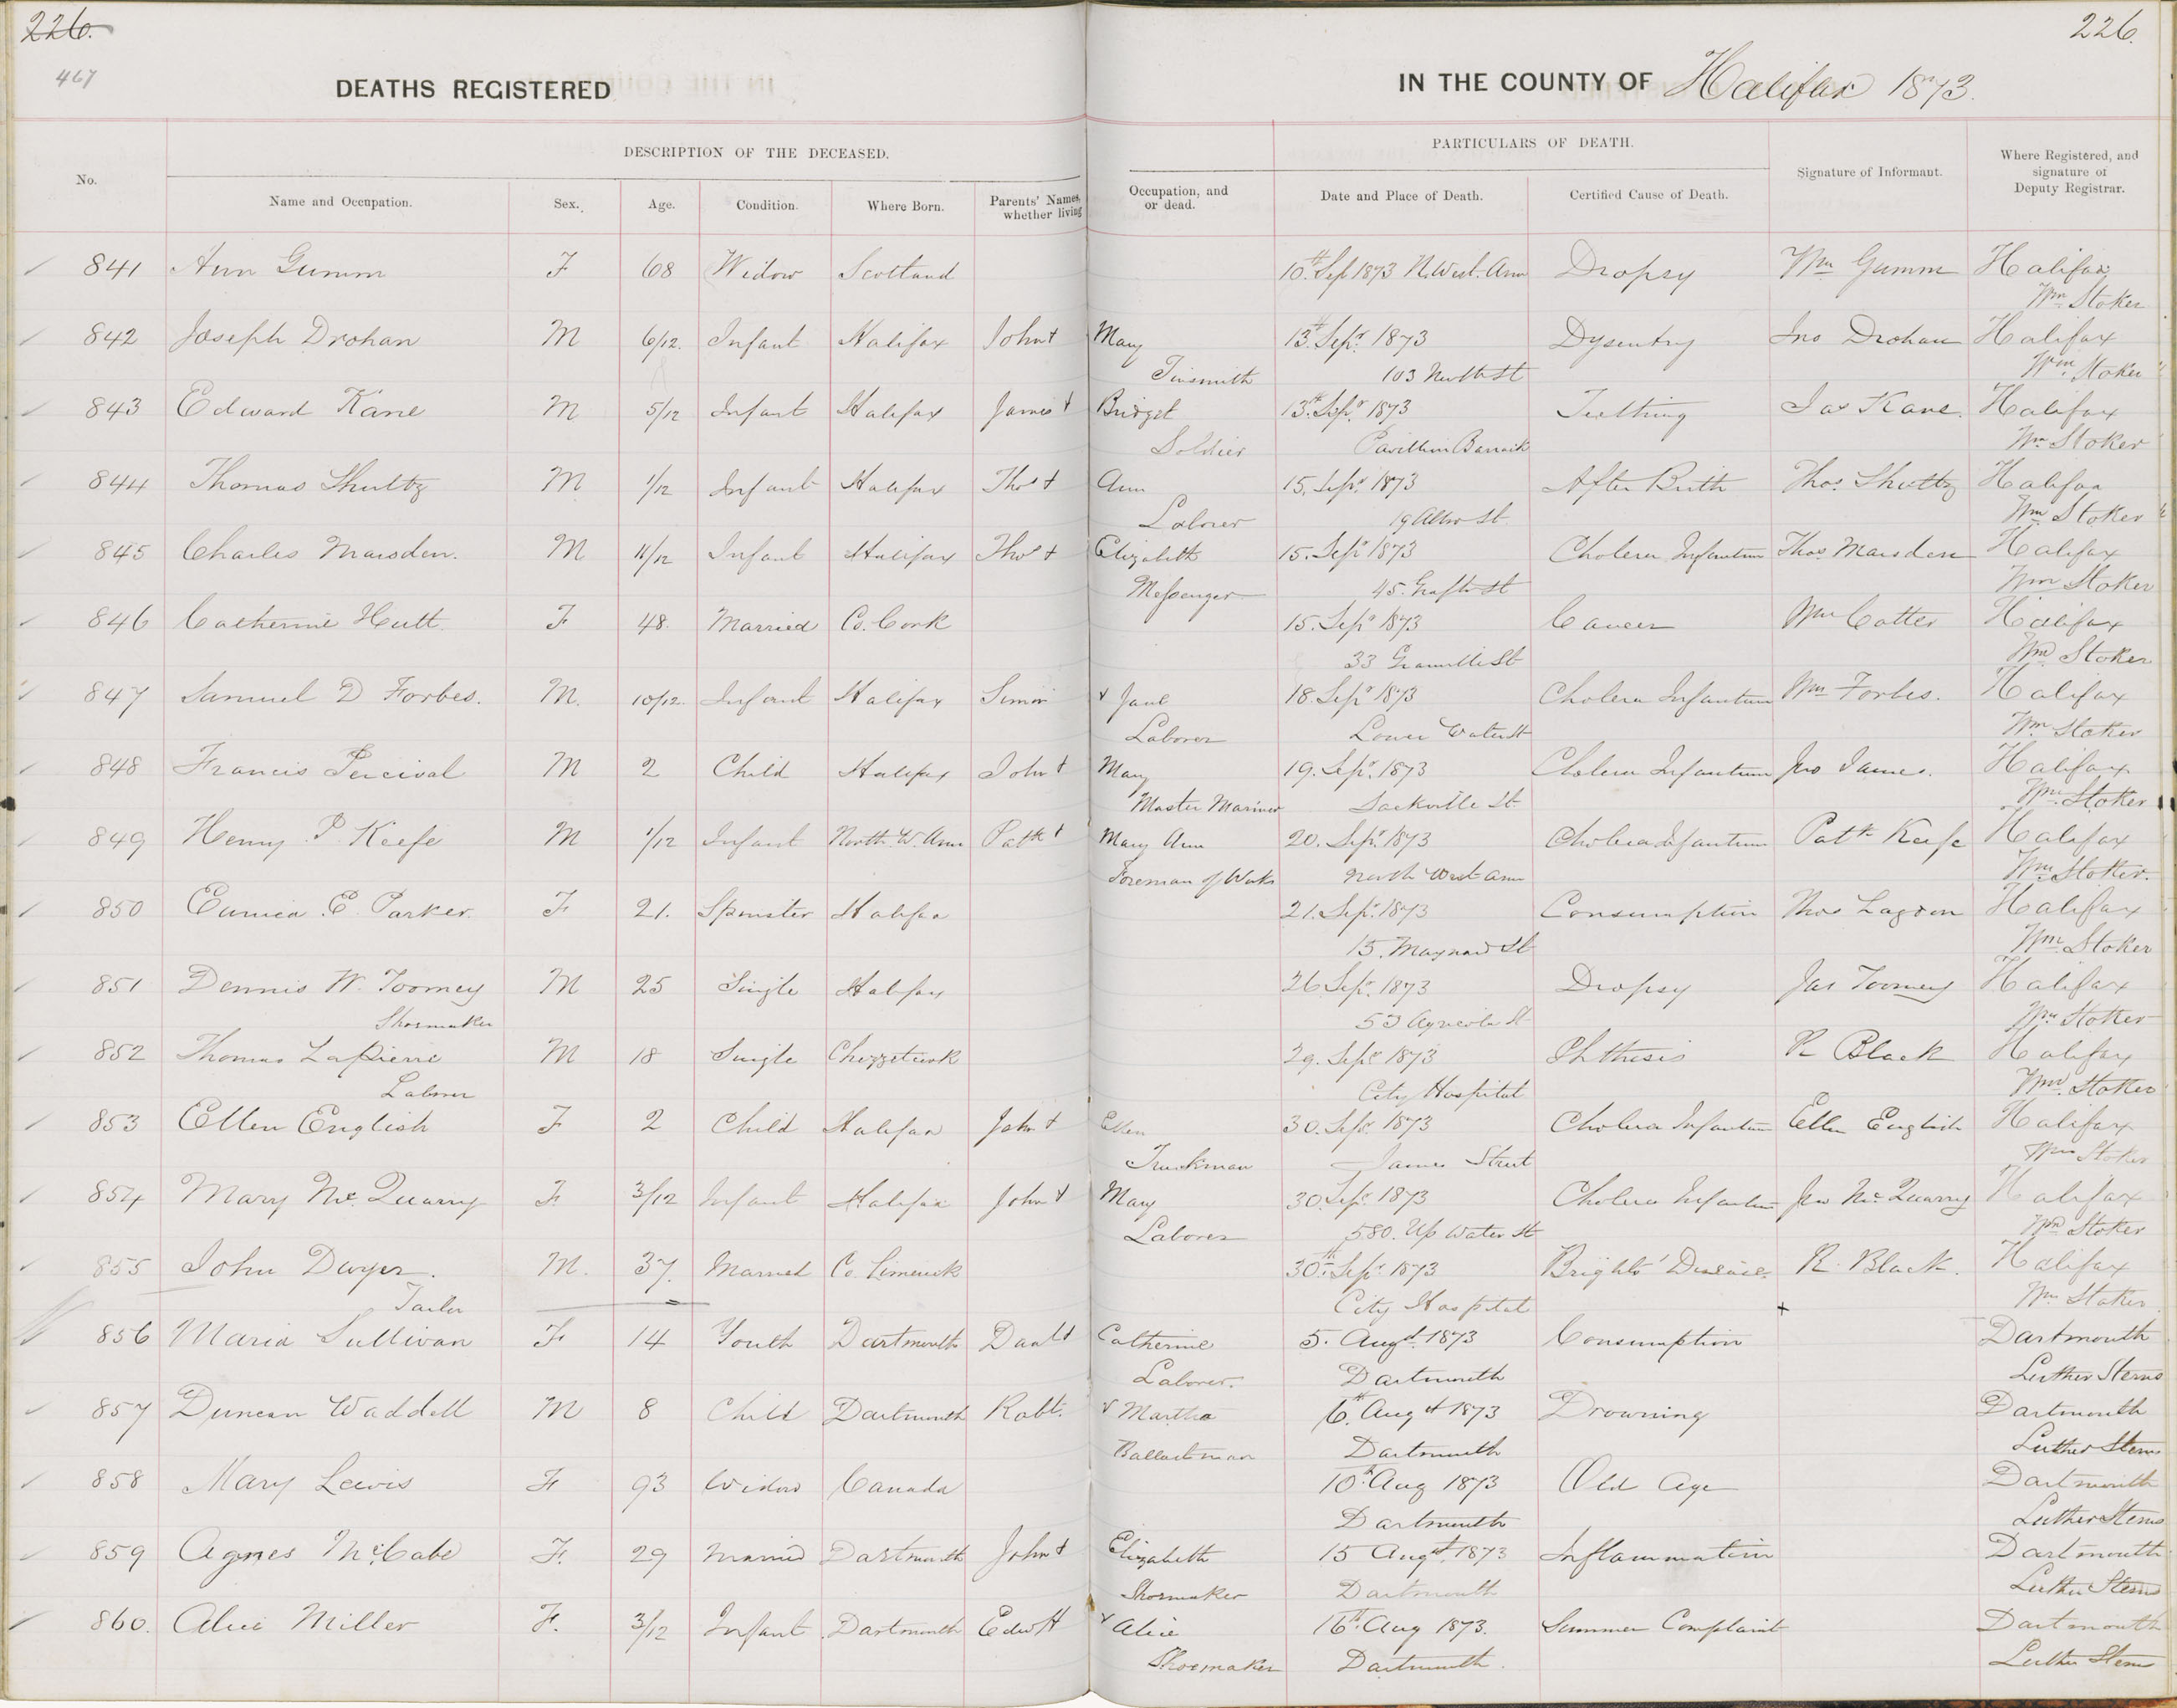 226. 226.
467
DEATHS REGISTERED IN THE COUNTY OF Halifax 1873.
DESCRIPTION OF THE DECEASED. PARTICULARS OF DEATH.
No. Name and Occupation. Sex. Age. Condition. Where Born. Parents' Names, whether living Occupation, and or dead. Date and Place of Death. Certified Cause of Death. Signature of Informant. Where Registered, and signature of Deputy Registrar.
841 Ann Gumm F 68 Widow Scotland 10th Sep 1873 N. West. Arm Dropsy Wm Gumm Halifax
Wm Stoker
842 Joseph Drohan M 6/12 Infant Halifax John + Mary 13th Sepr 1873 Dysentry Jno Drohan Halifax
Tinsmith 103 North St Wm Stoker
843 Edward Kane M 5/12 Infant Halifax James + Bridget 13th Sepr 1873 Teething Jas Kane. Halifax
Soldier Pavillion Barrack Wm Stoker
844 Thomas Shultz M 1/12 Infant Halifax Thos + Ann 15. Sepr 1873 After Birth Thos. Shultz Halifax
Laborer 19 Albro St. Wm Stoker
845 Charles Marsden. M 11/12 Infant Halifax Thos + Elizabeth 15. Sepr 1873 Cholera Infantum Thos Marsden Halifax
Messenger 45. Grafton St Wm Stoker
846 Catherine Hutt F 48 Married Co. Cork 15. Sepr 1873 Cancer Wm Cotter Halifax
33 Granville St Wm Stoker
847 Samuel D Forbes. M. 10/12 Infant Halifax Simon + Jane 18. Sepr 1873 Cholera Infantum Wm Forbes. Halifax
Laborer Lower Water St Wm Stoker
848 Francis Percival M 2 Child Halifax John + Mary 19. Sepr 1873 Cholera Infantum Jno James. Halifax
Master Mariner Sackville St Wm Stoker
849 Henry P. Keefe M 1/12 Infant North W. Arm Patk + Mary Ann 20. Sepr 1873 Cholera Infantum Patk Keefe Halifax
Foreman of Works North West Arm Wm Stoker.
850 Eunica E. Parker. F 21. Spinster Halifax 21. Sepr 1873 Consumption Thos Halifax
15. Maynard St Wm Stoker
851 Dennis W. Toomey M 25 Single Halifax 26 Sepr 1873 Dropsy Jas Toomey Halifax
Shoemaker 53 Agricola St Wm Stoker
852 Thomas LaPierre M 18 Single Chezzetcook 29. Sepr 1873 Phthisis R Black Halifax
Laborer City Hospital Wm Stoker
853 Ellen English F 2 Child Halifax John + Ellen 30. Sepr 1873 Cholera Infantum Ellen English Halifax
Truckman James Street Wm Stoker
854 Mary McQuarry F. 3/12 Infant Halifax John + Mary 30. Sepr 1873 Cholera Infantum Jno McQuarry Halifax
Laborer 580. Up Water St Wm Stoker
855 John Dwyer. M. 37. Married Co. Limerick 30th Sepr 1873 Brights' Disease. R. Black. Halifax
Tailor City Hospital Wm Stoker
856 Maria Sullivan F 14 Youth Dartmouth Danl + Catherine 5. Augt 1873 Consumption Dartmouth
Laborer. Dartmouth Luther Sterns
857 Duncan Waddell M 8 Child Dartmouth Robt. + Martha 6th Augt 1873 Drowning Dartmouth
Ballastman Dartmouth Luther Sterns
858 Mary Lewis F 93 Widow Canada 10th Aug 1873 Old Age Dartmouth
Dartmouth Luther Sterns
859 Agnes McCabe F. 29 Married Dartmouth John + Elizabeth 15 Augt 1873 Inflammation Dartmouth
Shoemaker Dartmouth Luther Sterns
860. Alice Miller F. 3/12 Infant Dartmouth Edwd + Alice 16th Aug 1873. Summer Complaint Dartmouth
Shoemaker Dartmouth. Luther Sterns